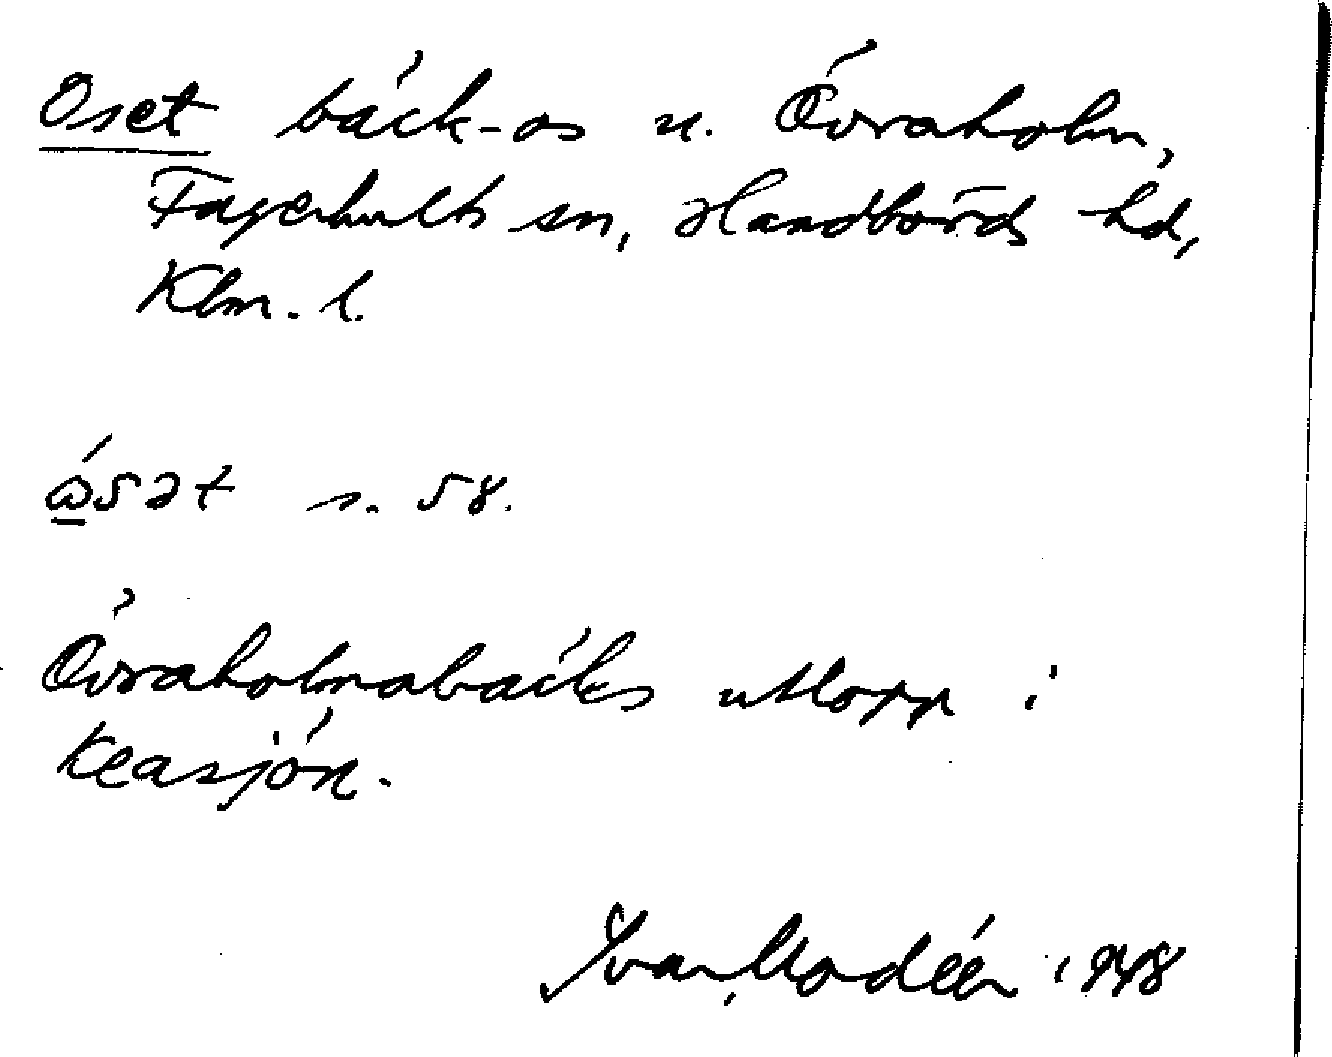 Oset bäck-os u. Övraholm,
Fagerhults sn, Handbörds hd,
Klm. l.
ώ̲sət s. 58.
Övraholmabäcks utlopp i
Keasjön.
Ivar Modéer 1948